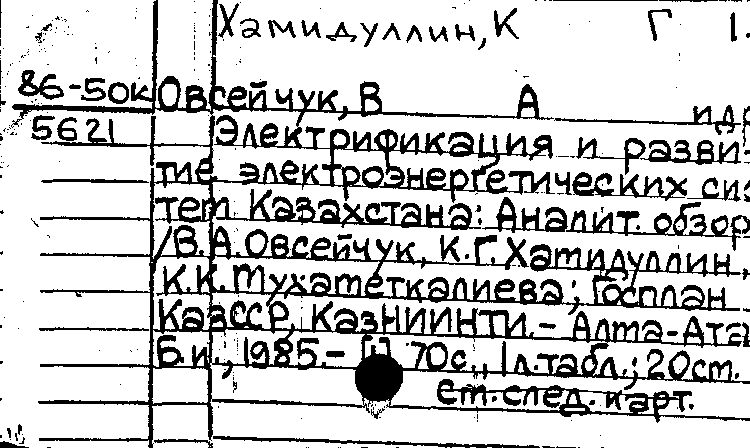 Хамидуллин, К Г 1.
86-50к Овсейчук, В А идр
5621 Электрификация и разви-
тие электроэнергетических сис
тем Казахстана: Аналит. обзор
/В.А.Овсейчук, К.Г.Хамидуллин,
К.К.Мухаметкалиева; Госплан
КазССР, КазНИИНТИ.- Алма-Ата
Б.и., 1985.- 70с., 1л.табл.; 20см.
см.след.карт.